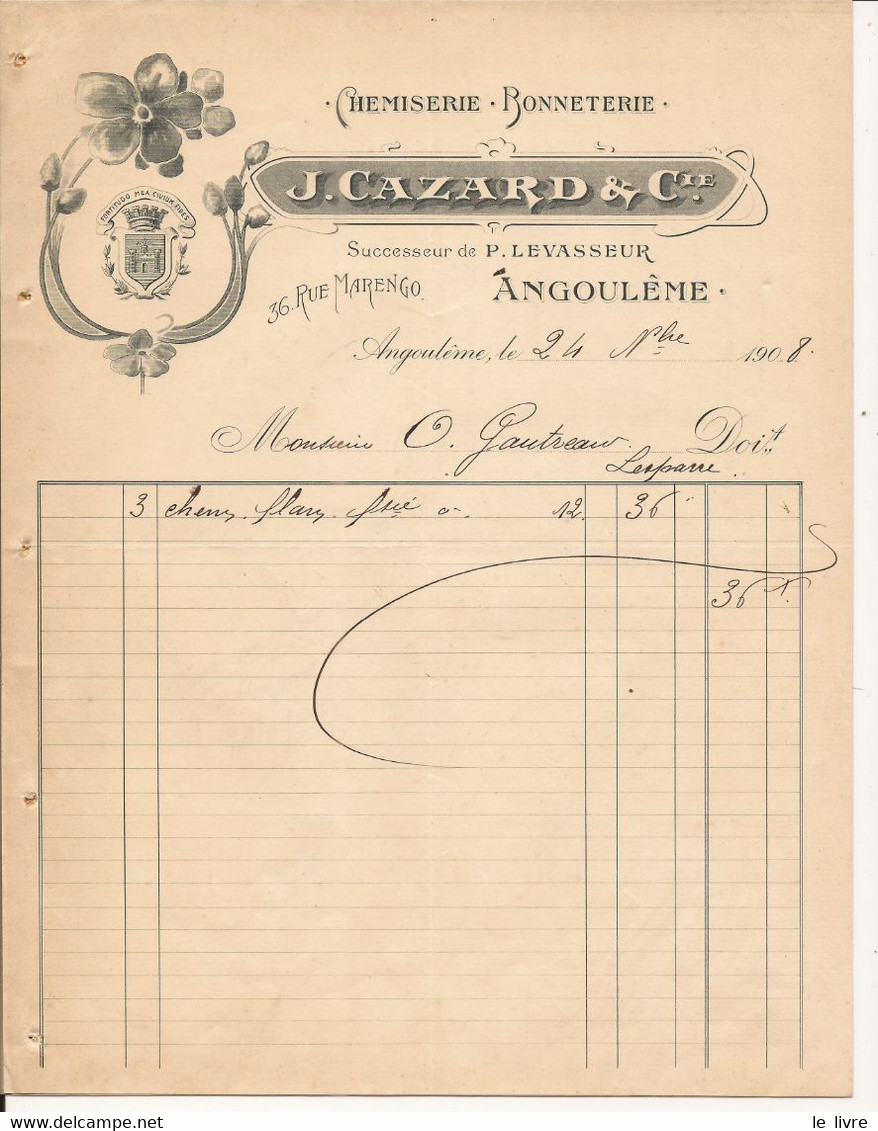 CHEMISERIE · BONNETERIE ·
J. CAZARD & CIE.
FORTITUDO MEA CIVIUM FIDES
Successeur de P. LEVASSEUR
36. RUE MARENGO. ANGOULÊME ·
Angoulême, le 24 Nbre 1908.
Monsieur O. Gautreau. Doit
Lesparre
3 chem. flan. 12. 36
36
le livre